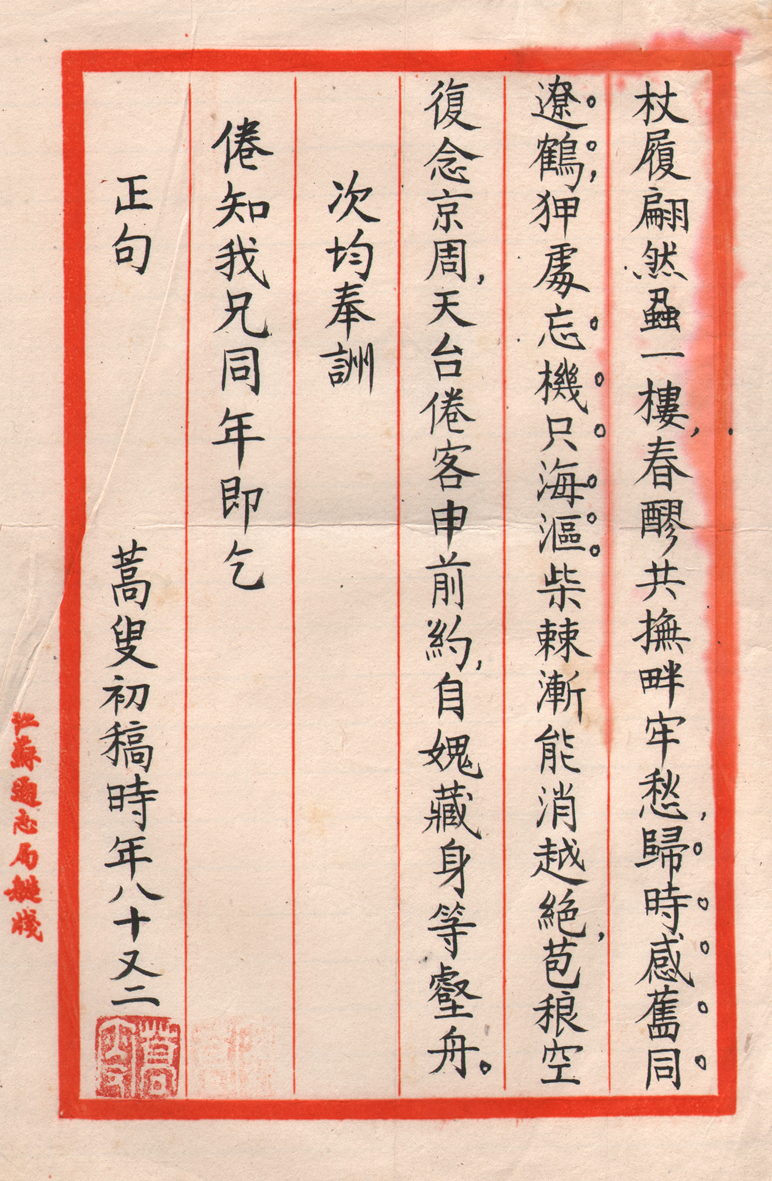 杖履翩然蝨一樓，春醪共撫畔牢愁，歸時感舊同
遼鶴，狎處忘機只海漚柴棘漸能消越絶，苞稂空
復念京周，天台倦客申前約，自媿藏身等壑舟。
次均奉詶
倦知我兄同年即乞
正句
蒿叟初稿時年八十又二
蘇通志局槤牋